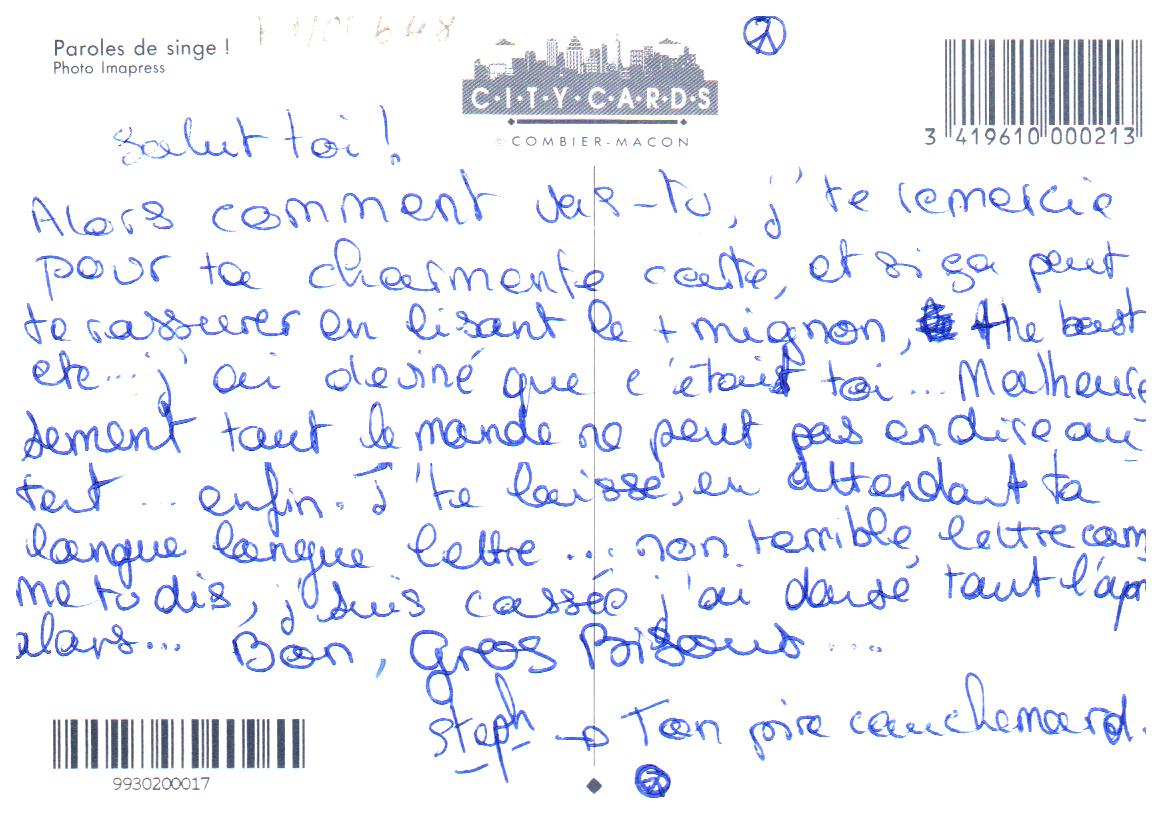 Paroles de singe !
Photo Imapress
C·I·T·Y·C·A·R·D·S
© COMBIER-MACON
3 419610 000213
Salut toi !
Alors comment vas-tu, j'te remercie
pour ta charmente carte, et si ça peut
te rassurer en lisant le + mignon, the best
etc... j'ai deviné que c'était toi... Malheure
sement tout le monde ne peut pas en dire au-
tant ... enfin. J'te laisse, en attendant ta
longue longue lettre ... non terrible, lettre com
me tu dis, j'suis cassée j'ai dansé tout l'apm
alors... Bon, Gros Bisous ....
Steph → Ton pire cauchemard.
9930200017